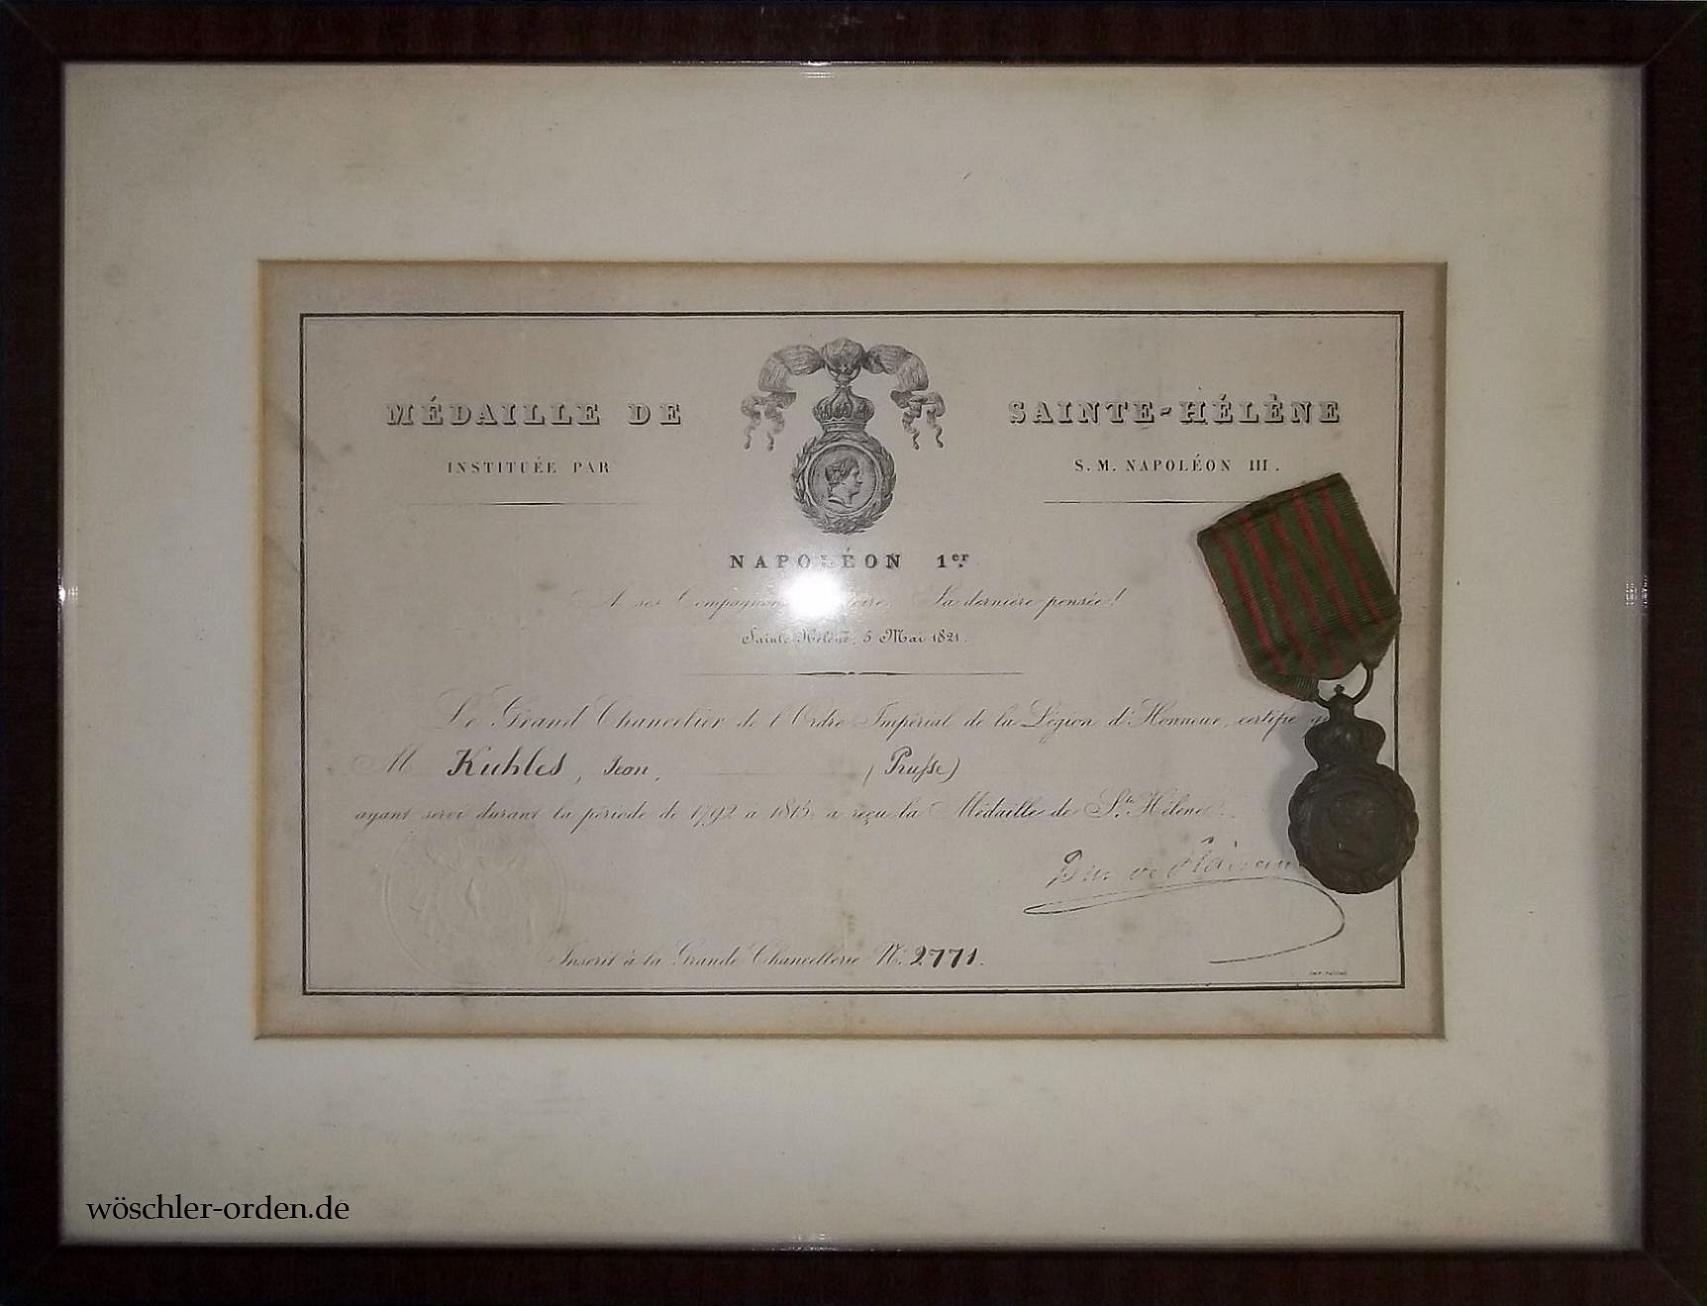 MÉDAILLE DE SAINTE-HÉLÈNE
INSTITUÉE PAR S. M. NAPOLÉON III.
NAPOLÉON 1er
A ses Compagnons gloire, Sa dernière pensée!
Sainte Hélène, 5 Mai 1821.
Le Grand Chancelier de l'Ordre Impérial de la Légion d'Honneur, certifie
M Kuhles, Jean, (Prusse)
ayant servi durant la période de 1792 à 1815, a reçu la Médaille de Ste Hélène.
Duc de Plaisance
Inscrit à la Grande Chancellerie No. 2771.
wöschler-orden.de